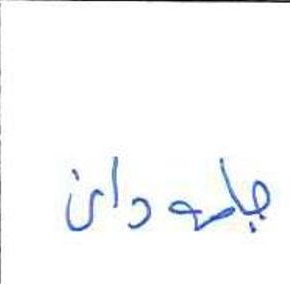 جامه دان